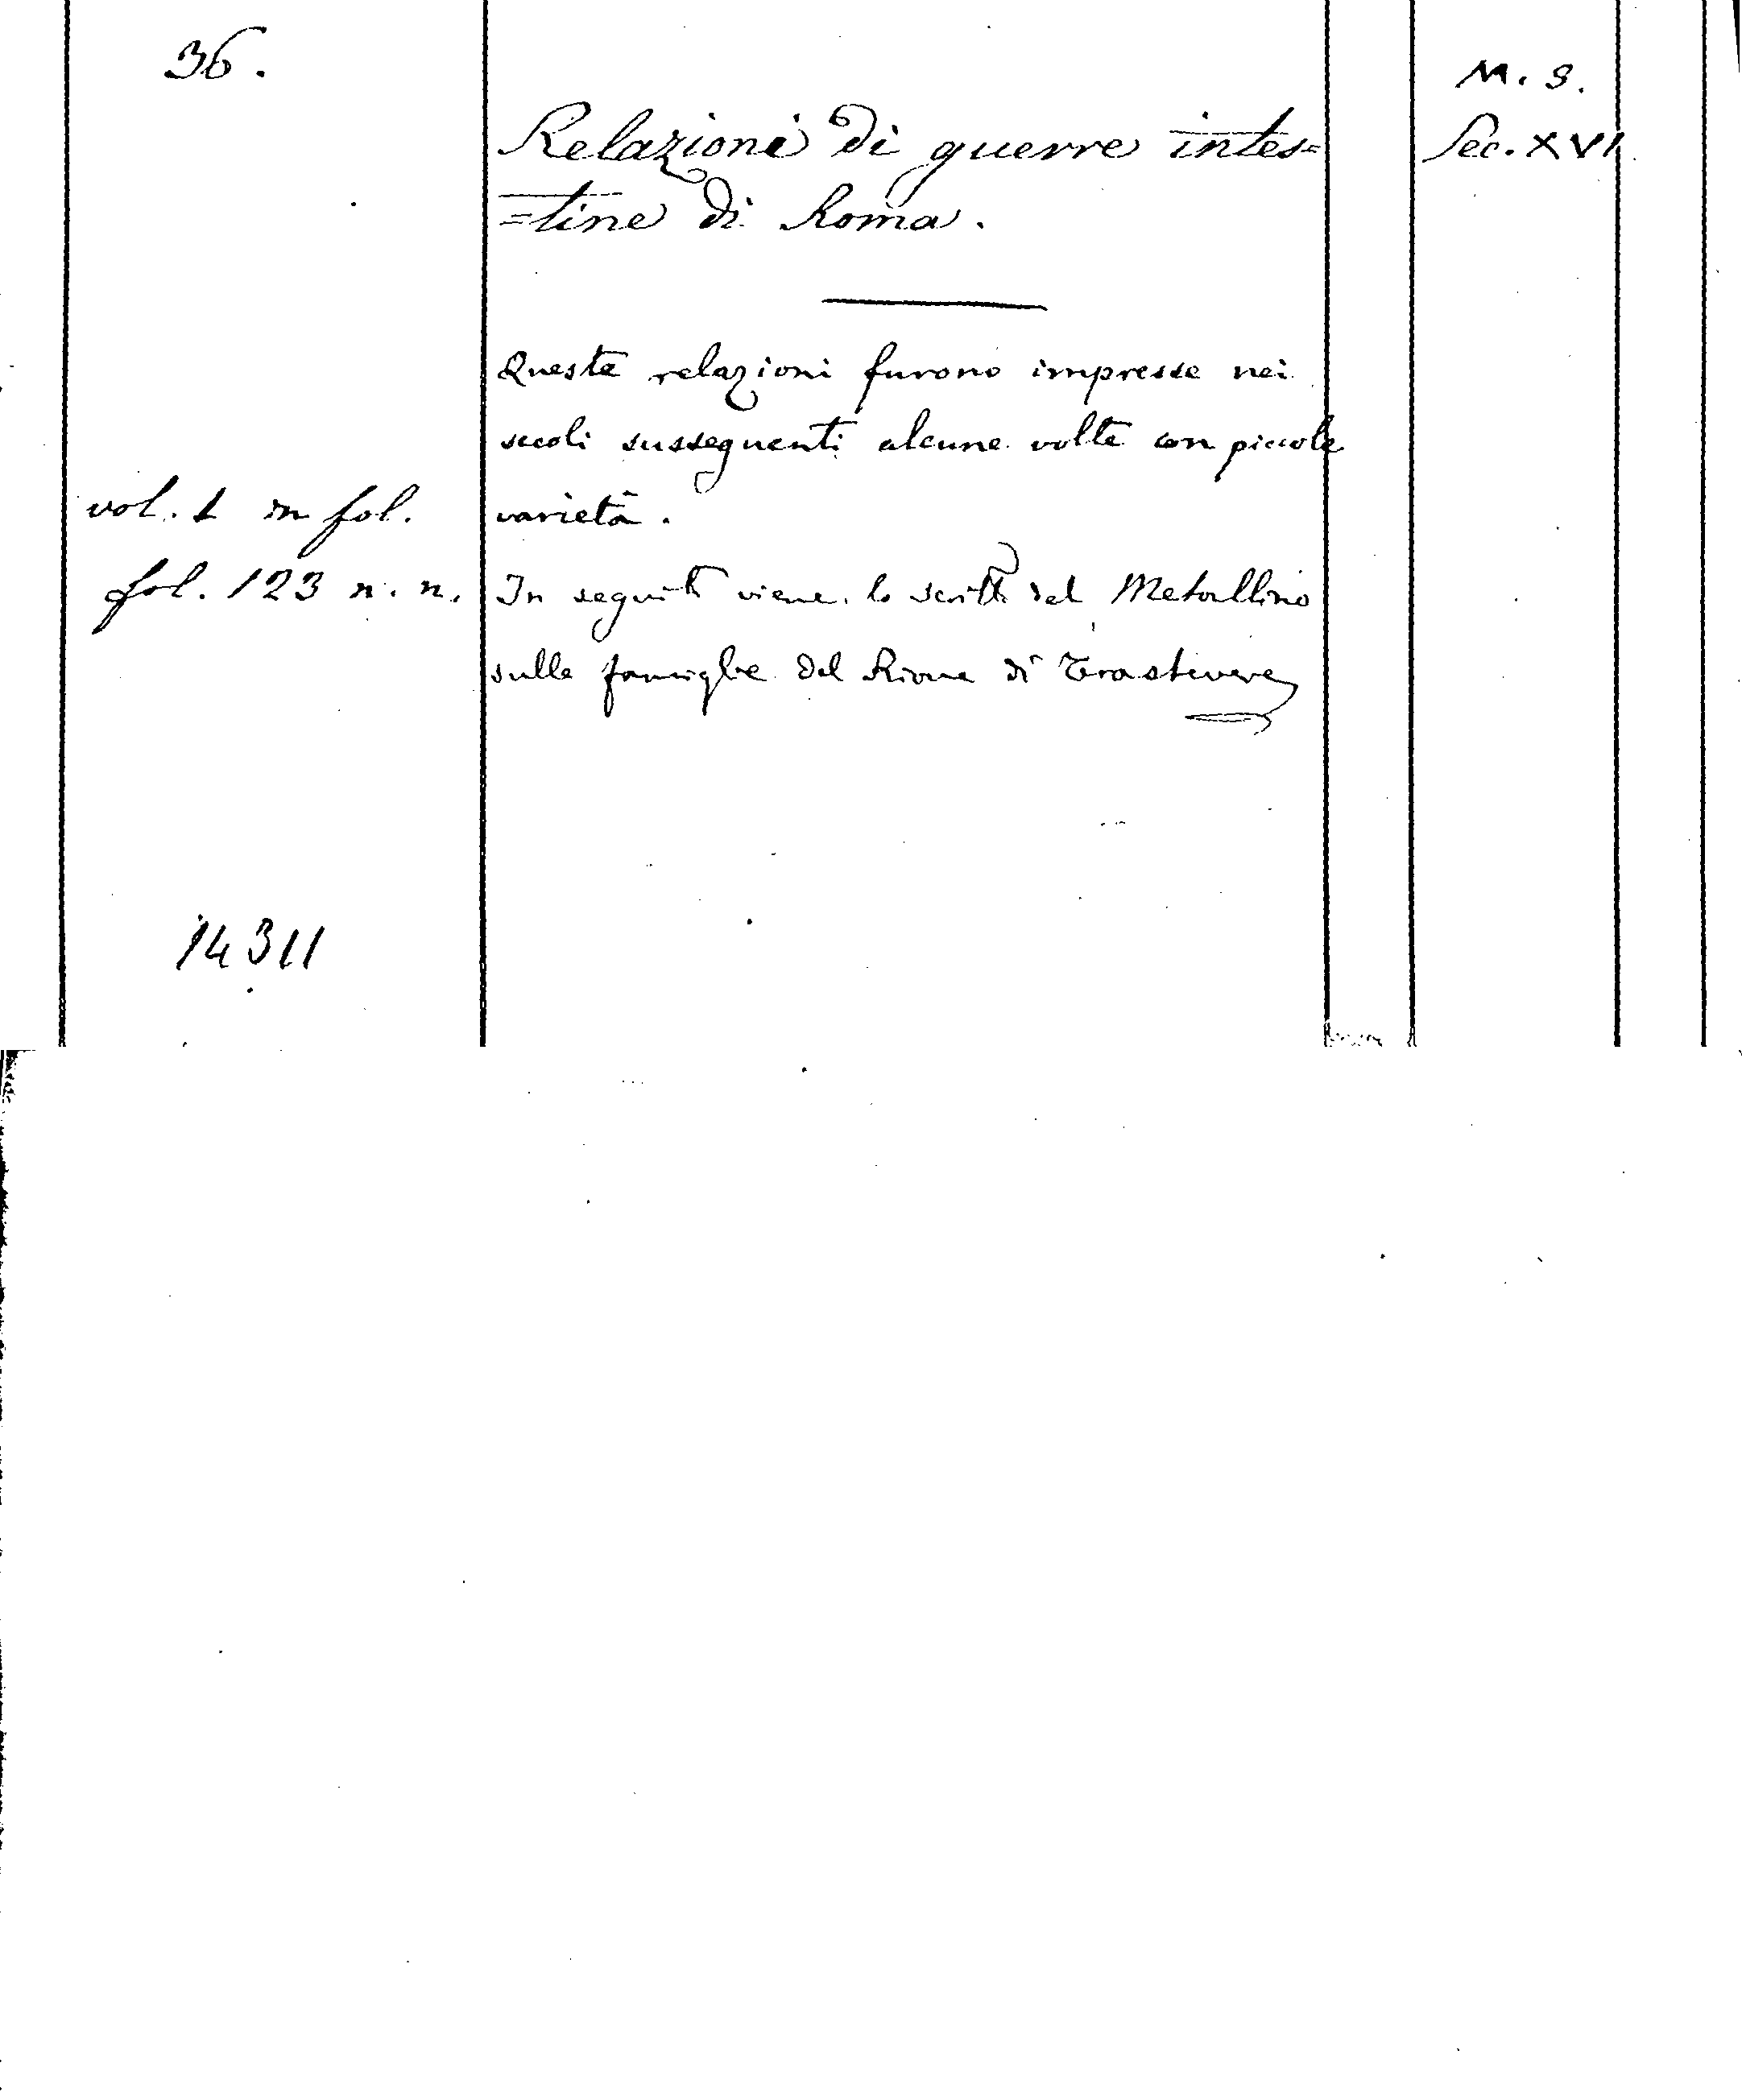 36.
M. S.
Relazioni di guerre intes=
Sec. XVI
=tine di Roma.
Queste relazioni furono impresse nei
secoli susseguenti alcune volte con piccole
vol. 1 in fol.
varietà.
fol. 123 n. n.
In seguito viene lo scritto del Metallino
sulle famiglie del Rione di Trastevere
14311